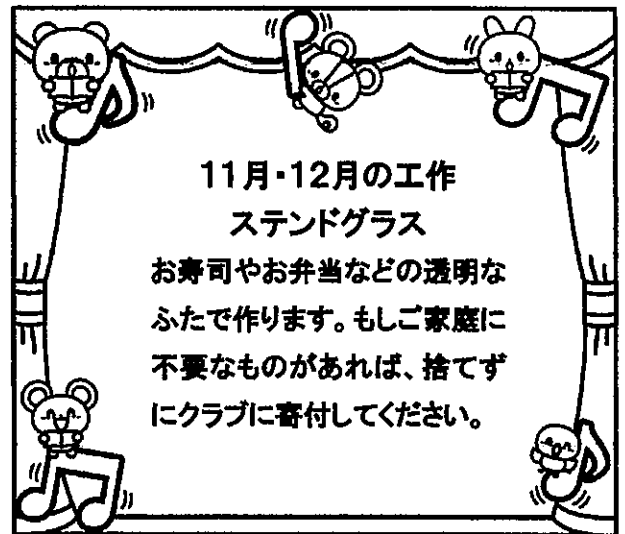 11月・12月の工作
ステンドグラス
お寿司やお弁当などの透明な
ふたで作ります。もしご家庭に
不要なものがあれば、捨てず
にクラブに寄付してください。